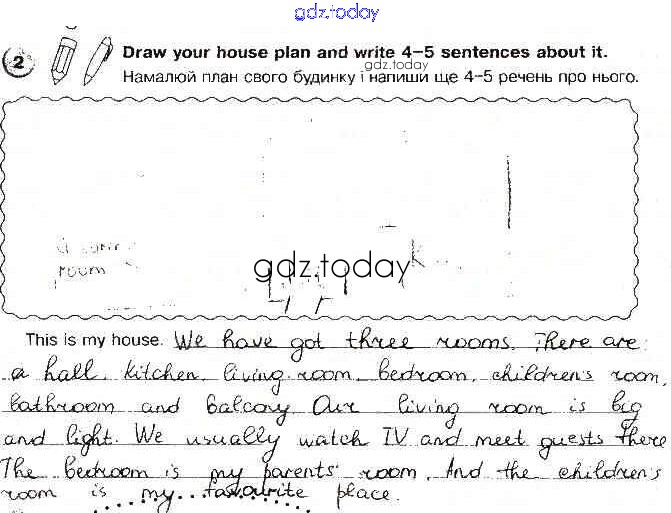 gdz.today
2
Draw your house plan and write 4–5 sentences about it.
gdz.today
Намалюй план свого будинку і напиши ще 4–5 речень про нього.
room
k
gdz.today
This is my house. We have got three rooms. There are:
a hall, kitchen, living-room, bedroom, children's room,
bathroom and balcony Our living room is big
and light. We usually watch TV and meet guests there
The bedroom is my parents' room. And the children's
room is my favourite place.